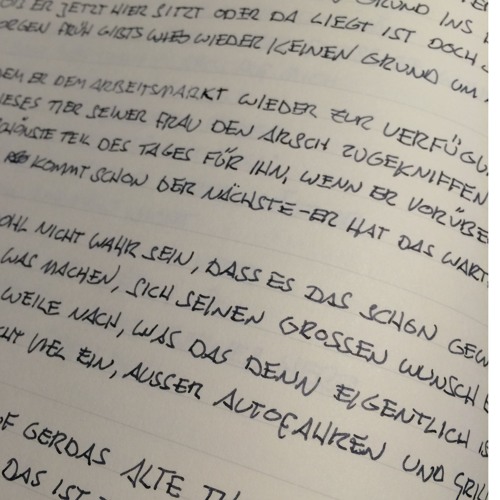 GRUND INS
ER JETZT HIER SITZT ODER DA LIEGT IST DOCH
MORGEN FRÜH GIBTS WIEDER KEINEN GRUND UM
DEM ER DEM ARBEITSMARKT WIEDER ZUR VERFÜGU
DIESES TIER SEINER FRAU DEN ARSCH ZUGEKNIFFEN
SCHÖNSTE TEIL DES TAGES FÜR IHN, WENN ER VORÜBE
KOMMT SCHON DER NÄCHSTE - ER HAT DAS WART
OHL NICHT WAHR SEIN, DASS ES DAS SCHON GEW
WAS MACHEN, SICH SEINEN GROSSEN WUNSCH
WEILE NACH, WAS DAS DENN EIGENTLICH IS
CHT VIEL EIN, AUSSER AUTOFAHREN UND GRI
OF GERDAS ALTE
DAS IST